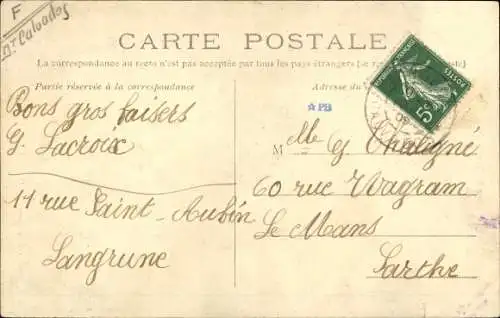 F
Dt Calvados
CARTE POSTALE
La correspondance au recto n'est pas acceptée par tous les pays étrangers (se
Partie réservée à la correspondance
Adresse du
POSTES
5c
PB
Bons gros baisers
G. Lacroix
11 rue Saint-Aubin
Langrune
M lle G Chaligné
60 rue Wagram
Le Mans
Sarthe